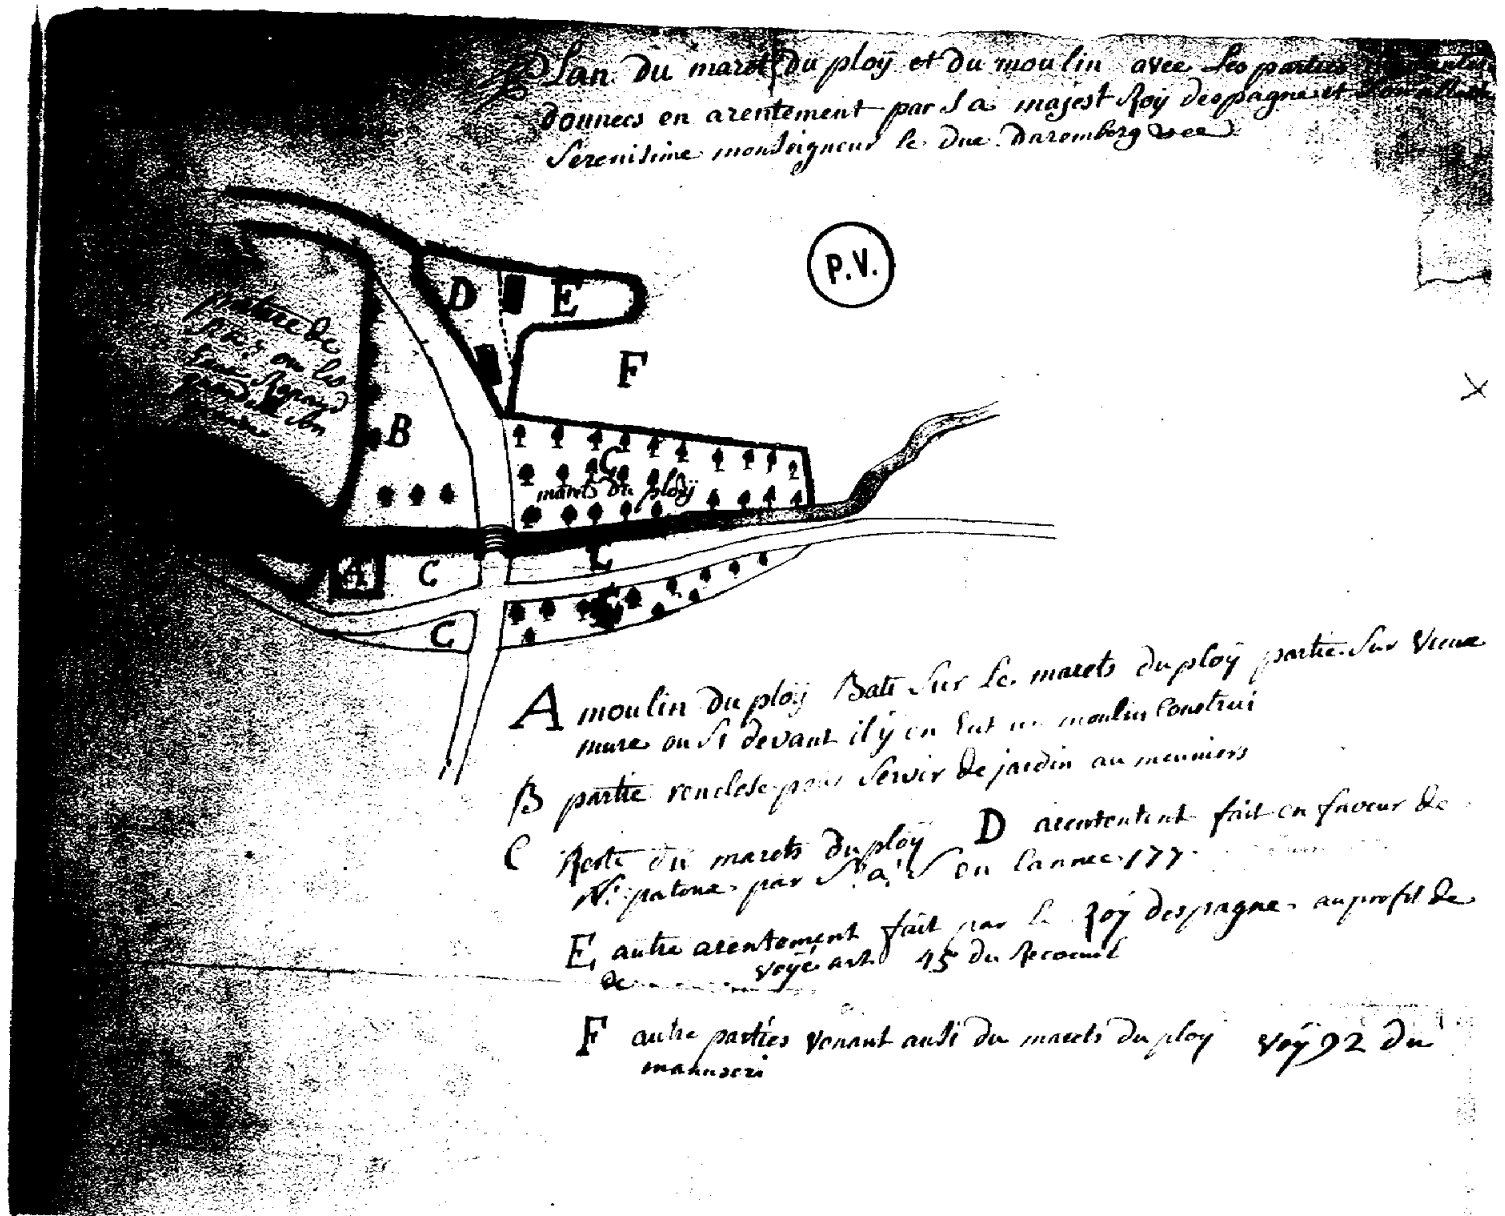 Plan du maret du ploÿ et du moulin avec les parties
donnees en arentement par sa majest Roÿ despagne et
Serenisime monseigneur le Duc Daremberg
P.V.
D
E
pature de
F
B
C
marets du ploÿ
C
A
C
C
A moulin du ploÿ Bati sur le marets du ploÿ partie sur vieux
mure ou si devant il ÿ en eut un moulin construi
B partie renclose pour servir de jardin au meuniers
C Reste du marets du ploÿ D arentement fait en faveur de
par S. a. S en lannee 177
E autre arentement fait par le Roÿ despagne au profit de
de voÿé art 45 du Recoeuil
F autre parties venant ausi du marets du ploÿ voÿ 92 du
manuscri